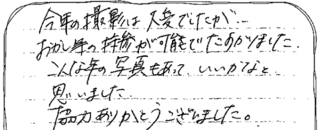 今年の撮影は大変でしたが…
おかし等の持参が可能でたすかりました。
こんな年の写真もあって、いいかなと
思いました
協力ありがとうございました。